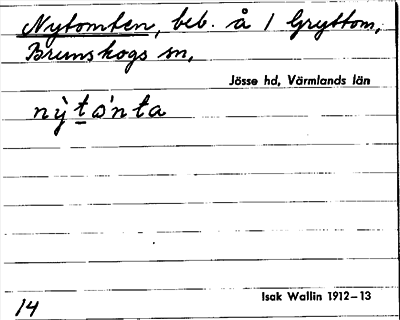 Nytomten, beb. å 1 Gryttom,
Brunskogs sn,
Jösse hd, Värmlands län
nỳto'nta
Isak Wallin 1912–13
14